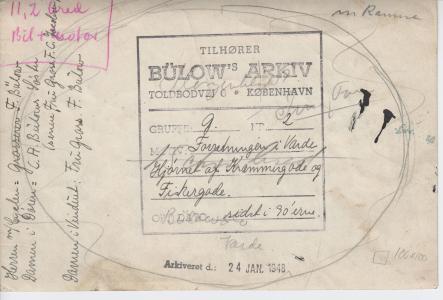 11,2 bred
Bil + motor
m Ramme
TILHØRER
BÜLOW'S ARKIV
TOLDBODVEJ 6 • KØBENHAVN
GRUPPE: 9. NR. 2
Forretningen i Varde
Hjørnet af Kræmmergade og
Fiskergade.
sidst i 90'erne.
Varde
Arkiveret d.: 24 JAN. 1948
Herren m/ Cyclen = Grosserer F. Bülow
Damen i Døren = C. A. Bülows
Damen i Vinduet: Fru Gross. F. Bülow